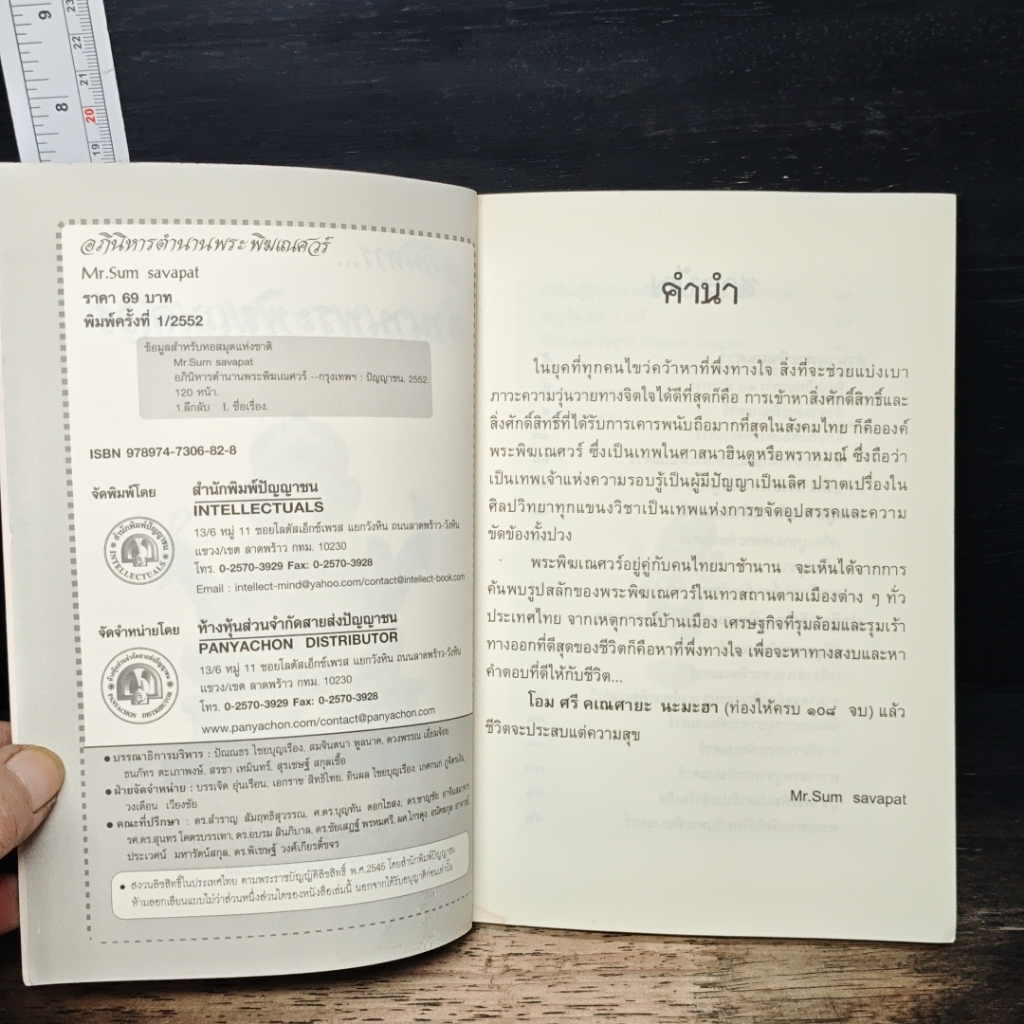 9
8
23
22
21
20
19
อภินิหารตำนานพระพิฆเณศวร์
Mr.Sum savapat
ราคา 69 บาท
พิมพ์ครั้งที่ 1/2552
ข้อมูลสำหรับหอสมุดแห่งชาติ
Mr.Sum savapat
อภินิหารตำนานพระพิฆเณศวร์ --กรุงเทพฯ : ปัญญาชน, 2552.
120 หน้า.
1.ลึกลับ I. ชื่อเรื่อง.
ISBN 978974-7306-82-8
จัดพิมพ์โดย
สำนักพิมพ์ปัญญาชน
INTELLECTUALS
13/6 หมู่ 11 ซอยโลตัสเอ็กซ์เพรส แยกวังหิน ถนนลาดพร้าว-วังหิน
แขวง/เขต ลาดพร้าว กทม. 10230
โทร. 0-2570-3929 Fax: 0-2570-3928
Email : intellect-mind@yahoo.com/contact@intellect-book.com
สำนักพิมพ์ปัญญาชน
INTELLECTUALS
จัดจำหน่ายโดย
ห้างหุ้นส่วนจำกัดสายส่งปัญญาชน
PANYACHON DISTRIBUTOR
13/6 หมู่ 11 ซอยโลตัสเอ็กซ์เพรส แยกวังหิน ถนนลาดพร้าว-วังหิน
แขวง/เขต ลาดพร้าว กทม. 10230
โทร. 0-2570-3929 Fax: 0-2570-3928
www.panyachon.com/contact@panyachon.com
PANYACHON DISTRIBUTOR
• บรรณาธิการบริหาร : ปัณณธร ไชยบุญเรือง, สมจินตนา พูลนาค, ดวงพรรณ เอี่ยมจ้อย
ธนภัทร ตะเภาพงษ์, สรชา เหมินทร์, สุรเชษฐ์ สกุลเชื้อ
• ฝ่ายจัดจำหน่าย : บรรเจิด อุ่นเรือน, เอกราช สิทธิไทย, อินผล ไชยบุญเรือง,
วงเดือน เวียงชัย
• คณะที่ปรึกษา : ดร.สำราญ สัมฤทธิสุวรรณ, ศ.ดร.บุญทัน ดอกไธสง,
รศ.ดร.สุนทร โคตรบรรเทา, ดร.อบรม สินภิบาล, ดร.ชัยเสฏฐ์ พรหมศรี,
ประเวศน์ มหารัตน์สกุล, ดร.พิเชษฐ์ วงศ์เกียรติ์ขจร
• สงวนลิขสิทธิ์ในประเทศไทย ตามพระราชบัญญัติลิขสิทธิ์ พ.ศ.2545 โดยสำนักพิมพ์ปัญญาชน
ห้ามลอกเลียนแบบไม่ว่าส่วนหนึ่งส่วนใดของหนังสือเล่มนี้ นอกจากได้รับอนุญาตก่อนเท่านั้น
คำนำ
ในยุคที่ทุกคนไขว่คว้าหาที่พึ่งทางใจ สิ่งที่จะช่วยแบ่งเบา
ภาวะความวุ่นวายทางจิตใจได้ดีที่สุดก็คือ การเข้าหาสิ่งศักดิ์สิทธิ์และ
สิ่งศักดิ์สิทธิ์ที่ได้รับการเคารพนับถือมากที่สุดในสังคมไทย ก็คือองค์
พระพิฆเณศวร์ ซึ่งเป็นเทพในศาสนาฮินดูหรือพราหมณ์ ซึ่งถือว่า
เป็นเทพเจ้าแห่งความรอบรู้เป็นผู้มีปัญญาเป็นเลิศ ปราดเปรื่องใน
ศิลปวิทยาทุกแขนงวิชาเป็นเทพแห่งการขจัดอุปสรรคและความ
ขัดข้องทั้งปวง
พระพิฆเณศวร์อยู่คู่กับคนไทยมาช้านาน จะเห็นได้จากการ
ค้นพบรูปสลักของพระพิฆเณศวร์ในเทวสถานตามเมืองต่าง ๆ ทั่ว
ประเทศไทย จากเหตุการณ์บ้านเมือง เศรษฐกิจที่รุมล้อมและรุมเร้า
ทางออกที่ดีสุดของชีวิตก็คือหาที่พึ่งทางใจ เพื่อจะหาทางสงบและหา
คำตอบที่ดีให้กับชีวิต...
โอม ศรี คเณศายะ นะมะฮา (ท่องให้ครบ ๑๐๘ จบ) แล้ว
ชีวิตจะประสบแต่ความสุข
Mr.Sum savapat